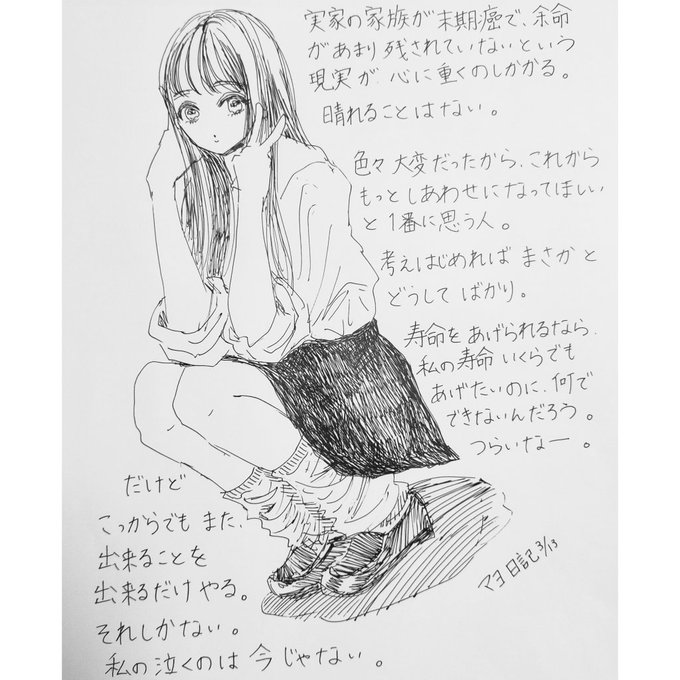 実家の家族が末期癌で、余命
があまり残されていないという
現実が、心に重くのしかかる。
晴れることはない。
色々大変だったから、これから
もっとしあわせになってほしい
と1番に思う人。
考えはじめれば まさか と
どうして ばかり。
寿命をあげられるなら、
私の寿命いくらでも
あげたいのに、何で
できないんだろう。
つらいなー。
だけど
こっからでも また、
出来ることを
出来るだけやる。
それしかない。
私の泣くのは今じゃない。
マヨ日記3/13